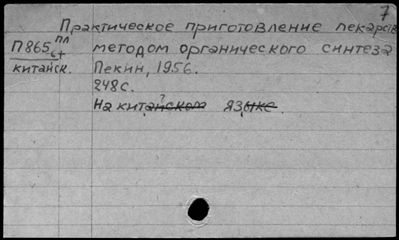 7
Практическое приготовление лекарств
П865 пл методом органического синтеза
китайск. Пекин, 1956.
248с.
На китайском языке.